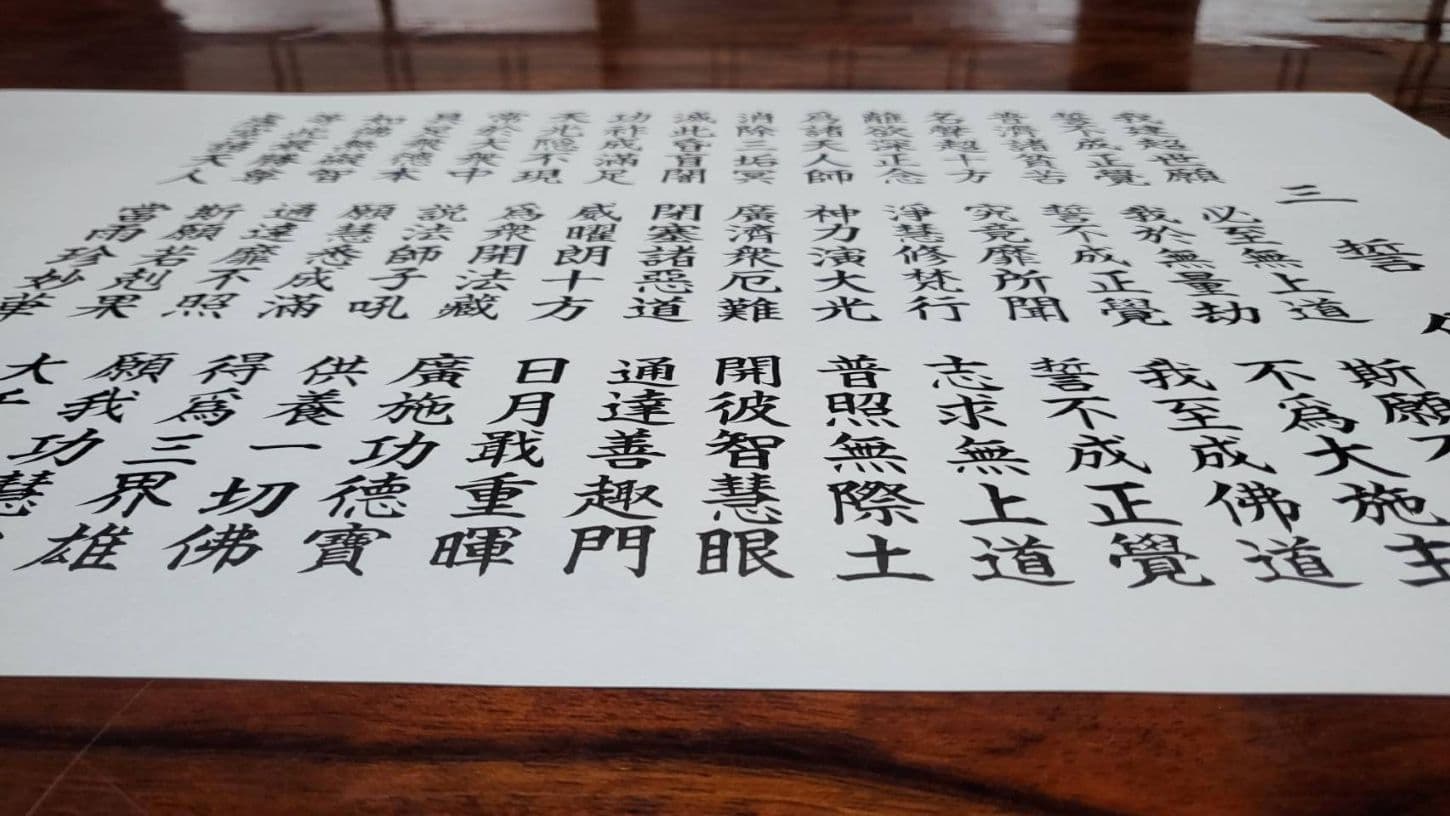 三誓
我建超世願 必至無上道 斯願
誓不成正覺 我於無量劫 不爲大施主
普濟諸貧苦 誓不成正覺 我至成佛道
名聲超十方 究竟靡所聞 誓不成正覺
離欲深正念 淨慧修梵行 志求無上道
爲諸天人師 神力演大光 普照無際土
消除三垢冥 廣濟衆厄難 開彼智慧眼
滅此昏盲闇 閉塞諸惡道 通達善趣門
功祚成滿足 威曜朗十方 日月戢重暉
天光隐不現 爲衆開法藏 廣施功德寶
常於大衆中 説法師子吼 供養一切佛
具足衆德本 願慧悉成滿 得爲三界雄
如佛無礙智 通達靡不照 願我功慧
等此最勝尊 斯願若剋果 大
虚空諸天人 當雨珍妙華